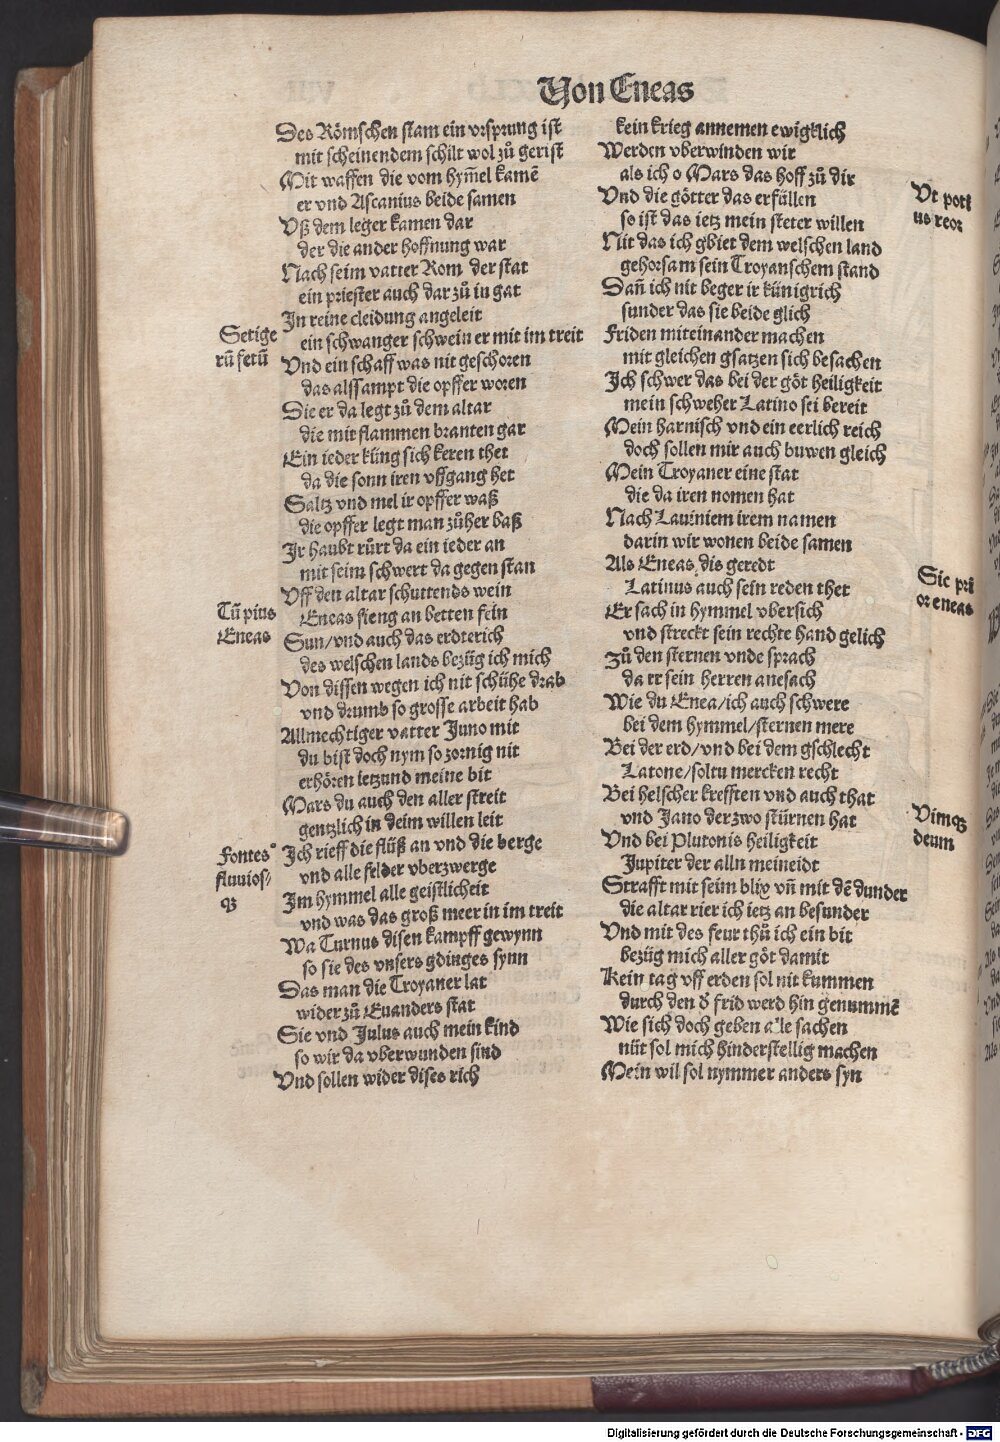 Von Eneas
Des Römschen stam ein vrsprung ist
mit scheinendem schilt wol zů gerist
Mit waffen die vom hym̄el kamē
er vnd Ascanius beide samen
Vß dem leger kamen dar
der die ander hoffnung war
Nach seim vatter Rom der stat
ein priester auch dar zů in gat
In reine cleidung angeleit
ein schwanger schwein er mit im treit
Vnd ein schaff was nit geschoren
das alssampt die opffer woren
Die er da legt zů dem altar
die mit flammen branten gar
Ein ieder küng sich keren thet
da die sonn iren vffgang het
Saltz vnd mel ir opffer waß
die opffer legt man zůher baß
Ir haubt růrt da ein ieder an
mit seim schwert da gegen stan
Vff den altar schuttends wein
Eneas fieng an betten fein
Sun/vnd auch das erdterich
des welschen lands bezüg ich mich
Von dissen wegen ich nit schühe drab
vnd drumb so grosse arbeit hab
Allmechtiger vatter Juno mit
du bist doch nym so zornig nit
erhören ietzund meine bit
Mars du auch den aller streit
gentzlich in deim willen leit
Ich rieff die flüß an vnd die berge
vnd alle felder vberzwerge
Im hymmel alle geistlicheit
vnd was das groß meer in im treit
Wa Turnus disen kampff gewynn
so sie des vnsers gdinges synn
Das man die Troyaner lat
wider zů Euanders stat
Sie vnd Julus auch mein kind
so wir da vberwunden sind
Vnd sollen wider dises rich
Setige
rū fetū
Tū pius
Eneas
Fontesꝰ
fluuios/
qꝫ
kein krieg annemen ewigklich
Werden vberwinden wir
als ich o Mars das hoff zů dir
Vnd die götter das erfüllen
so ist das ietz mein steter willen
Nit das ich gbiet dem welschen land
gehorsam sein Troyanschem stand
Dañ ich nit beger ir künigrich
sunder das sie beide glich
Friden miteinander machen
mit gleichen gsatzen sich besachen
Ich schwer das bei der göt heiligkeit
mein schweher Latino sei bereit
Mein harnisch vnd ein eerlich reich
doch sollen mir auch buwen gleich
Mein Troyaner eine stat
die da iren nomen hat
Nach Lauiniem irem namen
darin wir wonen beide samen
Als Eneas dis geredt
Latinus auch sein reden thet
Er sach in hymmel vbersich
vnd streckt sein rechte hand gelich
Zů den sternen vnde sprach
da er sein herren anesach
Wie du Enea/ich auch schwere
bei dem hymmel/sternen mere
Bei der erd/vnd bei dem gschlecht
Latone/soltu mercken recht
Bei helscher krefften vnd auch that
vnd Jano der zwo stürnen hat
Vnd bei Plutonis heiligkeit
Jupiter der alln meineidt
Strafft mit seim blix vñ mit dē dunder
die altar rier ich ietz an besunder
Vnd mit des feur thů ich ein bit
bezüg mich aller göt damit
Kein tag vff erden sol nit kummen
durch den d̛ frid werd hin genummē
Wie sich doch geben alle sachen
nüt sol mich hinderstellig machen
Mein wil sol nymmer anders syn
Vt poti
us reor
Sic pri
or eneas
Vimqꝫ
deum
Digitalisierung gefördert durch die Deutsche Forschungsgemeinschaft - DFG